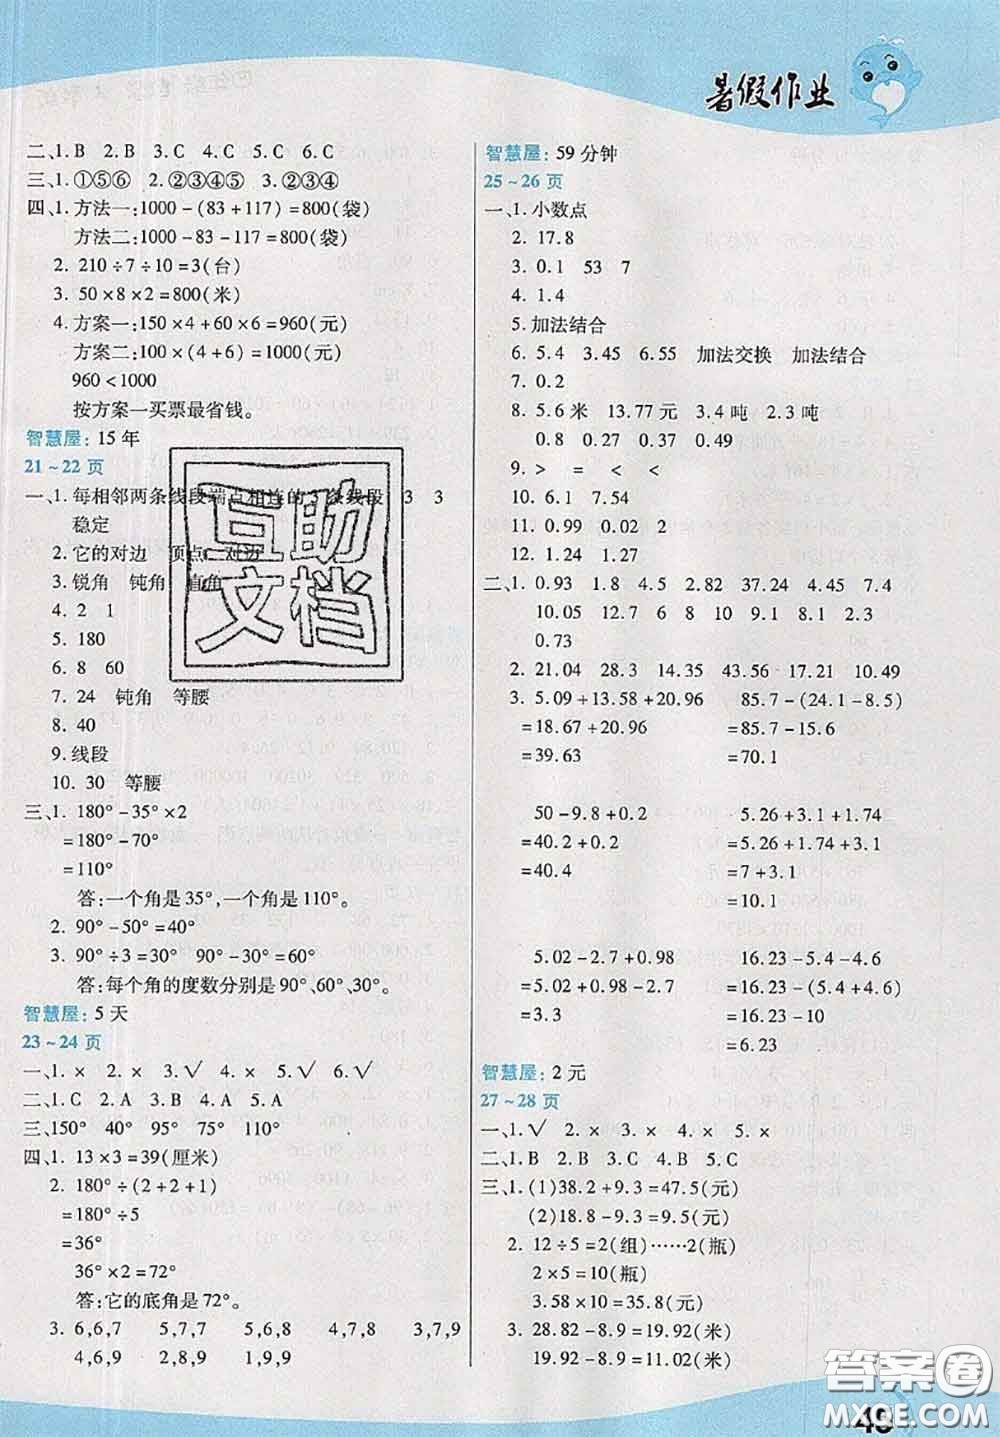 暑假作业
二、1. B 2. B 3. C 4. C 5. C 6. C
三、1. ①⑤⑥ 2. ②③④⑤ 3. ②③④
四、1. 方法一:1000-(83+117)=800(袋)
方法二:1000-83-117=800(袋)
2. 210÷7÷10=3(台)
3. 50×8×2=800(米)
4. 方案一:150×4+60×6=960(元)
方案二:100×(4+6)=1000(元)
960<1000
按方案一买票最省钱。
智慧屋:15年
21~22页
一、1. 每相邻两条线段端点相连的3条线段 3 3
稳定
2. 它的对边 顶点 对边
3. 锐角 钝角 直角
4. 2 1
5. 180
6. 8 60
7. 24 钝角 等腰
8. 40
9. 线段
10. 30 等腰
三、1. 180°-35°×2
=180°-70°
=110°
答:一个角是35°,一个角是110°。
2. 90°-50°=40°
3. 90°÷3=30° 90°-30°=60°
答:每个角的度数分别是90°、60°、30°。
智慧屋:5天
23~24页
一、1. × 2. × 3. √ 4. × 5. √ 6. √
二、1. C 2. A 3. B 4. A 5. A
三、150° 40° 95° 75° 110°
四、1. 13×3=39(厘米)
2. 180°÷(2+2+1)
=180°÷5
=36°
36°×2=72°
答:它的底角是72°。
3. 6,6,7 5,7,7 5,6,8 4,7,8 3,7,9
4,6,9 2,8,9 1,9,9
智慧屋:59分钟
25~26页
一、1. 小数点
2. 17.8
3. 0.1 53 7
4. 1.4
5. 加法结合
6. 5.4 3.45 6.55 加法交换 加法结合
7. 0.2
8. 5.6米 13.77元 3.4吨 2.3吨
0.8 0.27 0.37 0.49
9. > = < <
10. 6.1 7.54
11. 0.99 0.02 2
12. 1.24 1.27
二、1. 0.93 1.8 4.5 2.82 37.24 4.45 7.4
10.05 12.6 7.6 8 10 9.1 8.1 2.3
0.73
2. 21.04 28.3 14.35 43.56 17.21 10.49
3. 5.09+13.58+20.96 85.7-(24.1-8.5)
=18.67+20.96 =85.7-15.6
=39.63 =70.1
50-9.8+0.2 5.26+1.74+3.1
=40.2+0.2 =5.26+1.74+3.1
=40.4 =7+3.1
=10.1
5.02-2.7+0.98 16.23-5.4-4.6
=5.02+0.98-2.7 =16.23-(5.4+4.6)
=3.3 =16.23-10
=6.23
智慧屋:2元
27~28页
一、1. √ 2. × 3. × 4. × 5. ×
二、1. C 2. A 3. B 4. B 5. C
三、1. (1)38.2+9.3=47.5(元)
(2)18.8-9.3=9.5(元)
2. 12÷5=2(组)……2(瓶)
2×5=10(瓶)
3.58×10=35.8(元)
3. 28.82-8.9=19.92(米)
19.92-8.9=11.02(米)
互助
文档
答案圈
MXQE.COM